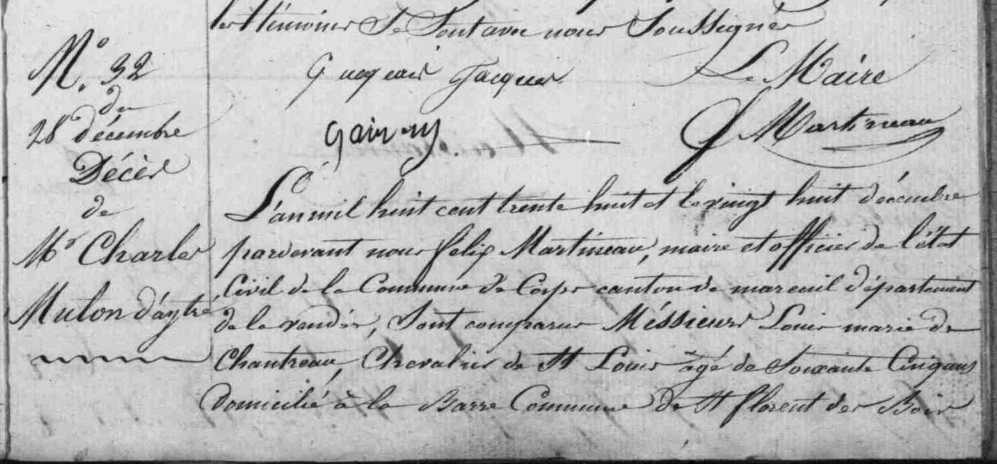 les témoins se sont avec nous soussignés
Jacques Le Maire
Martineau
N.° 32
du
28 décembre
Décès
de
Mr Charles
Mulon d'aytré
L'an mil huit cent trente huit et le vingt huit décembre
pardevant nous felix Martineau, maire et officier de l'état
Civil de la Commune de Corps canton de mareuil département
de la vendée, Sont comparus Méssieurs Louis marie de
Chantreau, Chevalier de St Louis âgé de Soixante Cinq ans
domicilié à la Barre Commune de St florent des Bois